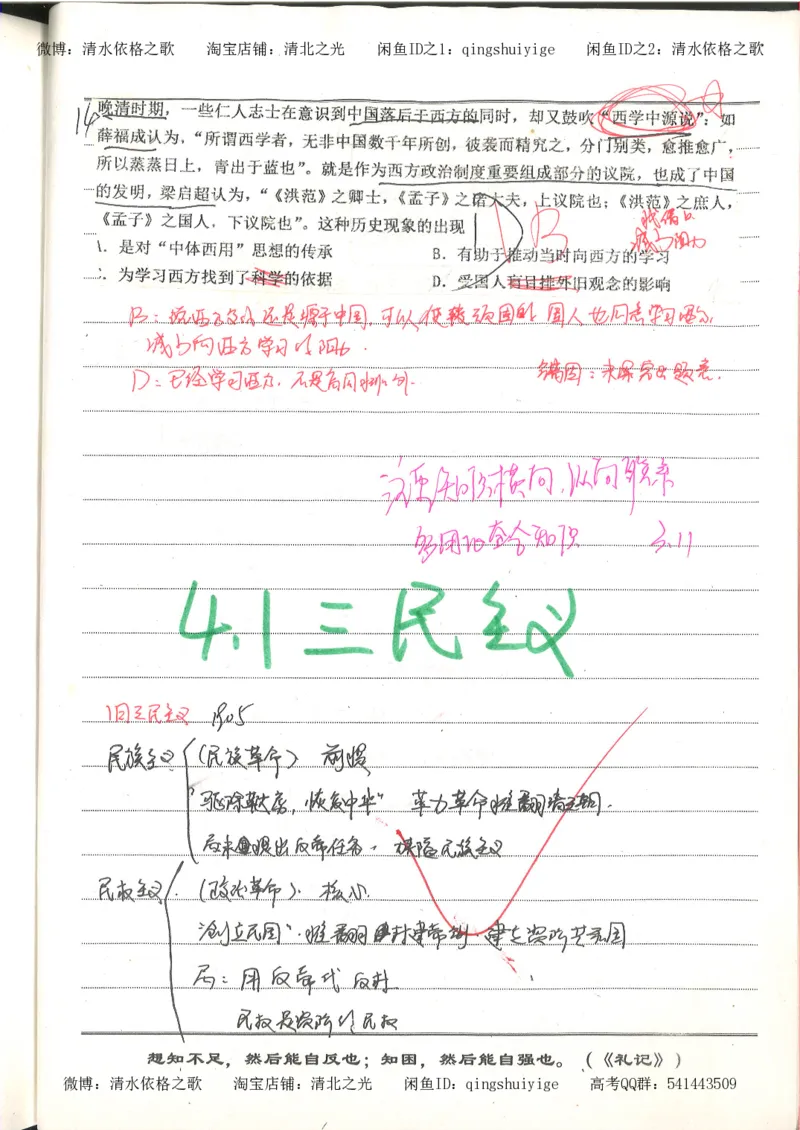 微博：清水依格之歌 淘宝店铺：清北之光 闲鱼ID之1：qingshuiyige 闲鱼ID之2：清水依格之歌
14 晚清时期，一些仁人志士在意识到中国落后于西方的同时，却又鼓吹“西学中源说”：如
薛福成认为，“所谓西学者，无非中国数千年所创，彼袭而精究之，分门别类，愈推愈广，
所以蒸蒸日上，青出于蓝也”。就是作为西方政治制度重要组成部分的议院，也成了中国
的发明，梁启超认为，“《洪范》之卿士，《孟子》之诸大夫，上议院也；《洪范》之庶人，
《孟子》之国人，下议院也”。这种历史现象的出现
B
减少阻力
是对“中体西用”思想的传承 B．有助于推动当时向西方的学习
为学习西方找到了科学的依据 D．受国人盲目排外旧观念的影响
B：说西方文化还是源于中国，可以使较顽固的国人也同意学习西方，
减少向西方学习的阻力．
D：已经学习西方，不是盲目排外的．
错因：未踩突出题意．
注意知识横向，纵向联系
多用的整合知识 3.11
4.1三民主义
旧三民主义 1905
民族主义 (民族革命) 前提
“驱除鞑虏，恢复中华” 革力革命推翻清王朝．
后来也提出反帝任务．
民权主义 (政治革命)．核心．
“创立民国”．推翻封建帝制．建立资阶共和国
后：用反帝代反封
民权是资阶的民权
想知不足，然后能自反也；知困，然后能自强也。（《礼记》）
微博：清水依格之歌 淘宝店铺：清北之光 闲鱼ID：qingshuiyige 高考QQ群：541443509